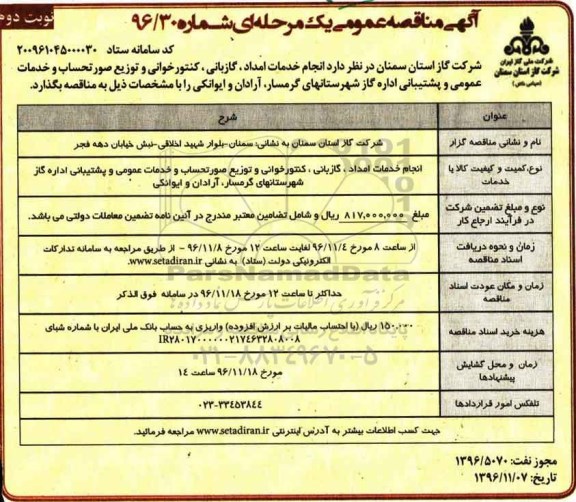 نوبت دوم
آگهی مناقصه عمومی یک مرحله‌ای شماره ۹۶/۳۰
کد سامانه ستاد ۲۰۰۹۶۱۰۴۵۰۰۰۰۳۰
شرکت ملی گاز ایران
شرکت گاز استان سمنان
(سهامی خاص)
شرکت گاز استان سمنان در نظر دارد انجام خدمات امداد ، گازبانی ، کنتورخوانی و توزیع صورتحساب و خدمات
عمومی و پشتیبانی اداره گاز شهرستانهای گرمسار، آرادان و ایوانکی را با مشخصات ذیل به مناقصه بگذارد.
عنوان
شرح
نام و نشانی مناقصه گزار
شرکت گاز استان سمنان به نشانی: سمنان-بلوار شهید اخلاقی-نبش خیابان دهه فجر
نوع،کمیت و کیفیت کالا یا
خدمات
انجام خدمات امداد ، گازبانی ، کنتورخوانی و توزیع صورتحساب و خدمات عمومی و پشتیبانی اداره گاز
شهرستانهای گرمسار، آرادان و ایوانکی
نوع و مبلغ تضمین شرکت
در فرآیند ارجاع کار
مبلغ ۸۱۷,۰۰۰,۰۰۰ ریال و شامل تضامین معتبر مندرج در آئین نامه تضمین معاملات دولتی می باشد.
زمان و نحوه دریافت
اسناد مناقصه
از ساعت ۸ مورخ ۹۶/۱۱/۴ لغایت ساعت ۱۲ مورخ ۹۶/۱۱/۸ - از طریق مراجعه به سامانه تدارکات
الکترونیکی دولت (ستاد) به نشانی www.setadiran.ir.
زمان و مکان عودت اسناد
مناقصه
حداکثر تا ساعت ۱۲ مورخ ۹۶/۱۱/۱۸ در سامانه فوق الذکر
هزینه خرید اسناد مناقصه
۱۵۰,۰۰۰ ریال (با احتساب مالیات بر ارزش افزوده) واریزی به حساب بانک ملی ایران با شماره شبای
IR۲۸۰۱۷۰۰۰۰۰۰۲۱۷۴۶۳۲۸۰۸۰۰۸
زمان و محل گشایش
پیشنهادها
مورخ ۹۶/۱۱/۱۸ ساعت ۱۴
تلفکس امور قراردادها
۰۲۳-۳۳۴۵۳۸۴۴
جهت کسب اطلاعات بیشتر به آدرس اینترنتی www.setadiran.ir مراجعه فرمائید.
مجوز نفت: ۱۳۹۶/۵۰۷۰
تاریخ: ۱۳۹۶/۱۱/۰۷
ParsNamadData
۰۲۱-۸۸۳۴۹۶۷۰-۵